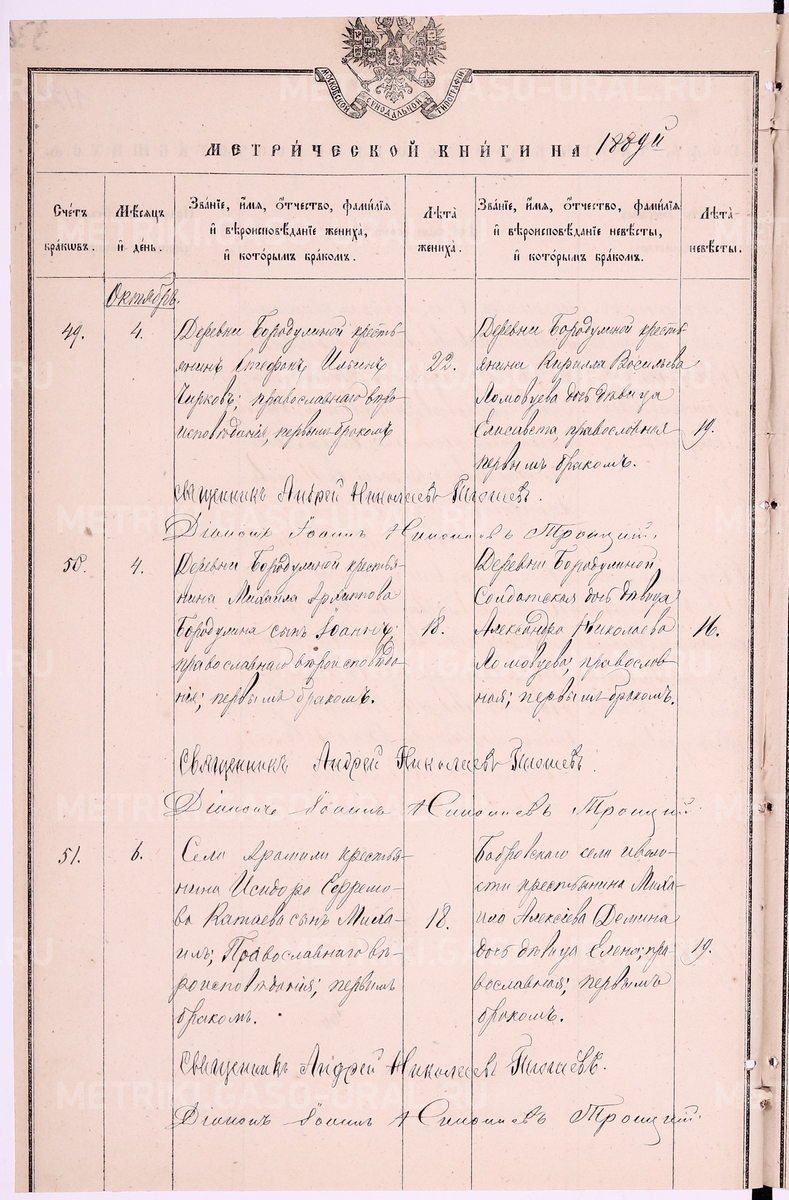 МОСКОВСКОЙ СѴНОДАЛЬНОЙ ТИПОГРАФІИ
МЕТРИ́ЧЕСКОЙ КНИ́ГИ НА 1889й
Сче́тъ бра́кѡвъ.
Мѣ́сяцъ и҆ де́нь.
Зва́нїе, и҆́мя, ѻ҆́тчество, фами́лїя и҆ вѣроисповѣ́данїе жениха̀, и҆ кото́рымъ бра́комъ.
Лѣ́та жениха̀.
Зва́нїе, и҆́мя, ѻ҆́тчество, фами́лїя и҆ вѣроисповѣ́данїе невѣ́сты, и҆ кото́рымъ бра́комъ.
Лѣ́та невѣ́сты.
Октябрь.
49.
4.
Деревни Бородулиной кресть-
янинъ Стефанъ Ильинъ
Чирковъ; православнаго вѣро-
исповѣданія, первымъ бракомъ
22.
Деревни Бородулиной кресть-
янина Кирилла Васильева
Ломовцева дочь дѣвица
Елисавета, православная
первымъ бракомъ.
19.
Священникъ Андрей Николаевъ
Діаконъ Іоаннъ Симоновъ Троицкій.
50.
4.
Деревни Бородулиной крестья-
нина Михаила Архиппова
Бородулина сынъ Іоаннъ;
православнаго вѣроисповѣда-
нія; первымъ бракомъ.
18.
Деревни Бородулиной
Солдатская дочь дѣвица
Александра Николаева
Ломовцева; православ-
ная; первымъ бракомъ.
16.
Священникъ Андрей Николаевъ
Діаконъ Іоаннъ Симоновъ Троицкій.
51.
6.
Села Арамили крестья-
нина Исидора Ефремо-
ва Катаева сынъ Миха-
илъ; Православнаго вѣ-
роисповѣданія; первымъ
бракомъ.
18.
Бобровскаго села и воло-
сти крестьянина Миха-
ила Алексѣева Демина
дочь дѣвица Елена; пра-
вославная; первымъ
бракомъ.
19.
Священникъ Андрей Николаевъ
Діаконъ Іоаннъ Симоновъ Троицкій.
METRIKI.GASO-URAL.RU